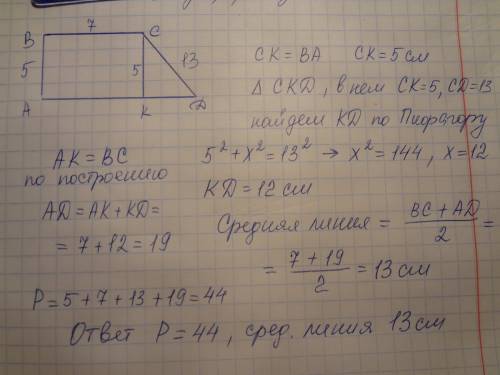 B 7 C
5 5 13
A K D
CK = BA CK = 5 см
Δ CKD, в нем CK=5, CD=13
найдем KD по Пифагору
5² + x² = 13² → x² = 144, x = 12
KD = 12 см
AK = BC
по построению
AD = AK + KD =
= 7 + 12 = 19
Средняя линия = (BC + AD)/2 =
= (7 + 19)/2 = 13 см
P = 5 + 7 + 13 + 19 = 44
Ответ P = 44, сред. линия 13 см